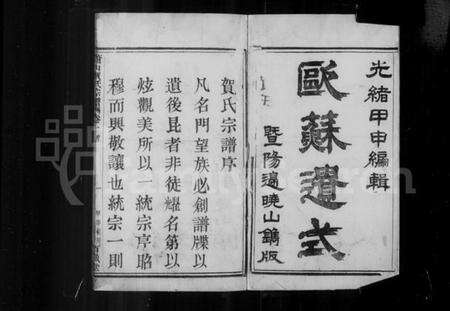 光緒甲申編輯
歐蘇遺式
暨陽邊曉山鐫版
賀氏宗譜序
凡名門望族必創譜牒以
遺後昆者非徒耀名第以
炫觀美所以一統宗亨昭
穆而興敬讓也統宗一則